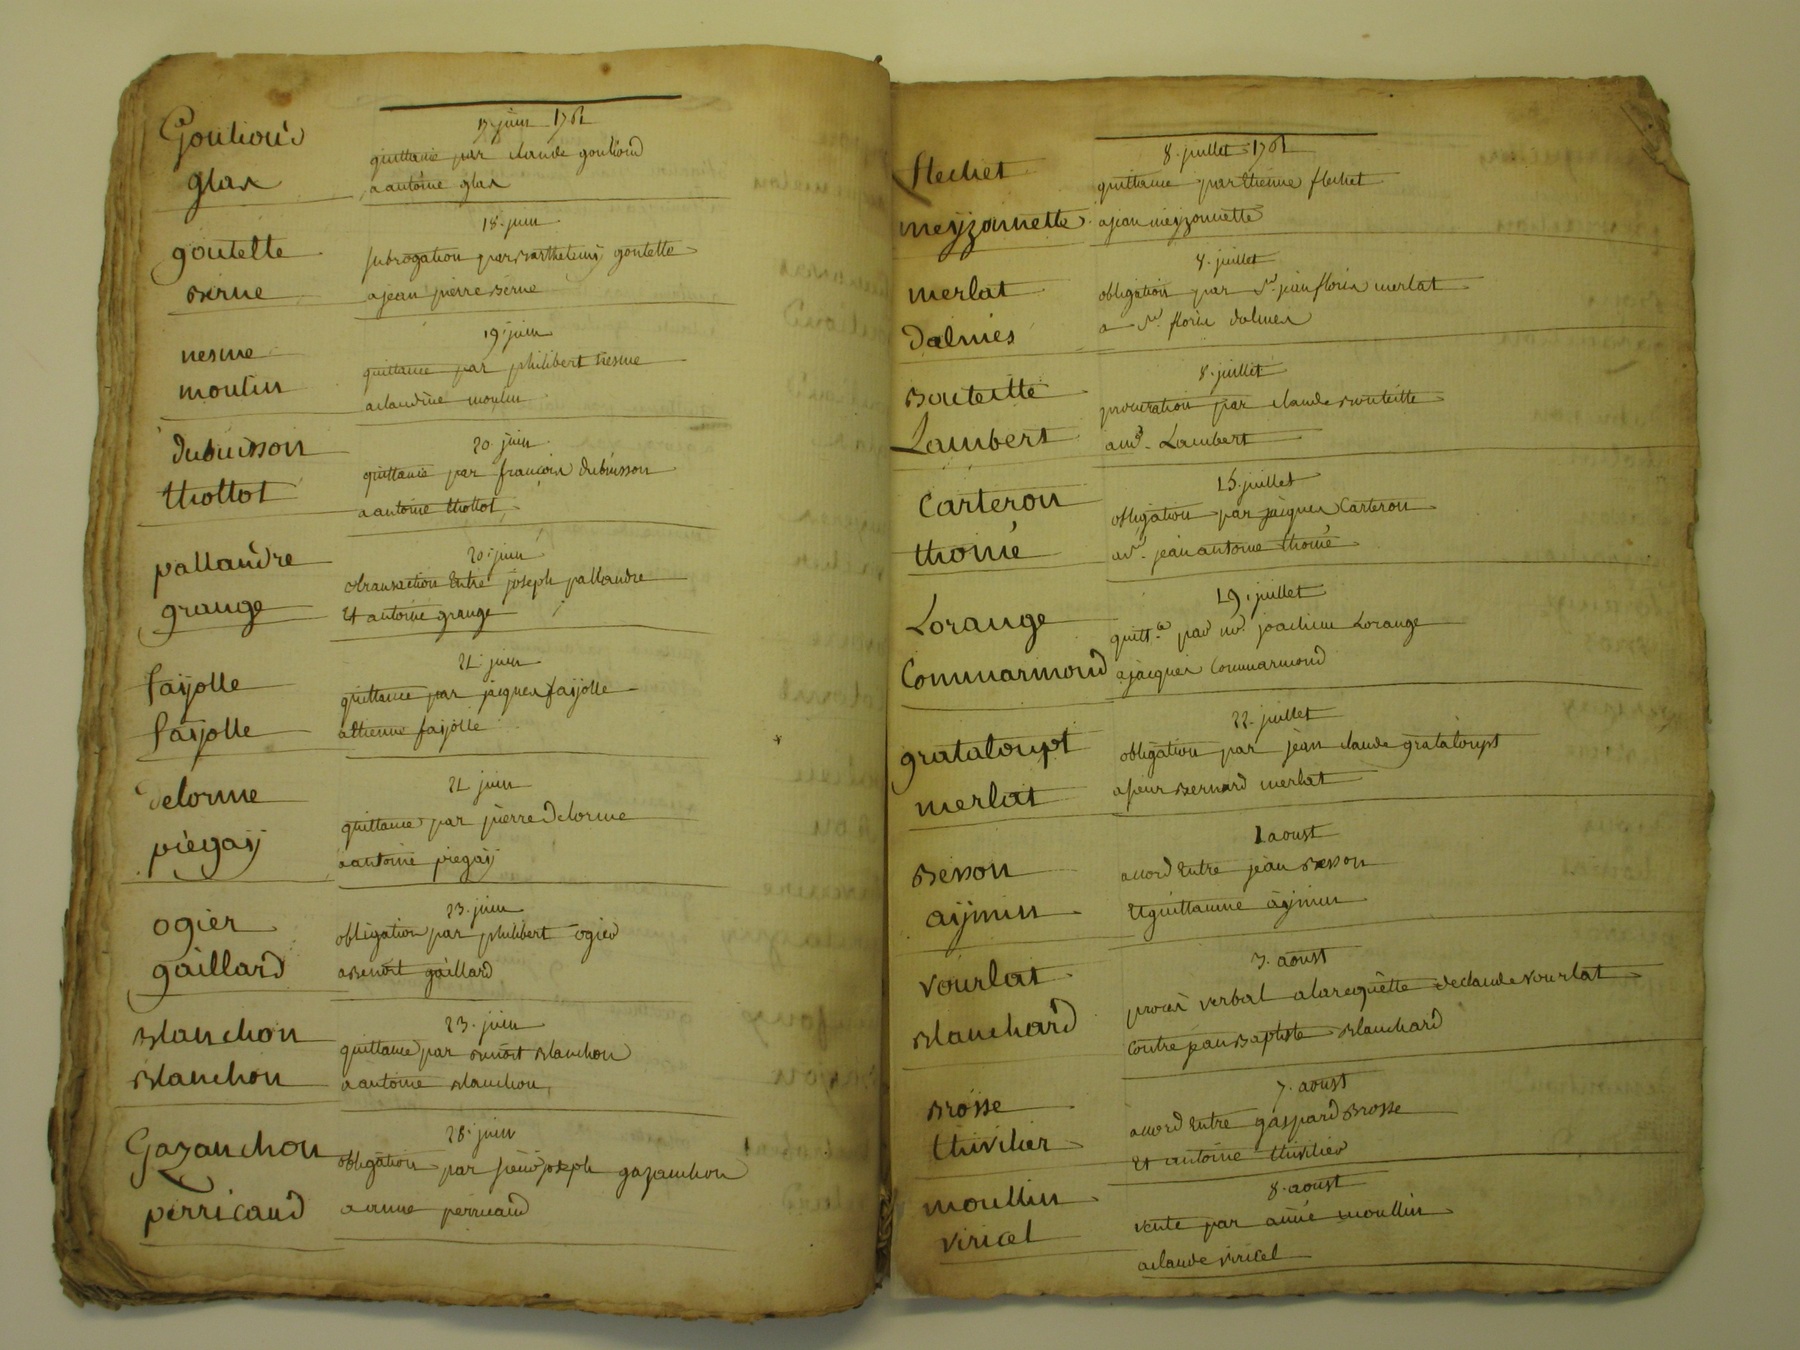 17 juin 1761
Goutiond
quittance par claude goutiond
glas
a antoine glas
18. juin
goutelle
subrogation par Barthelemy goutelle
Berne
a jean pierre Berne
19 juin
nesme
quittance par philibert nesme
moulin
a claudine moulin
20 juin
Dubuisson
quittance par françois Dubuisson
thottot
a antoine thottot
20. juin
pallandre
transaction Entre joseph pallandre
grange
Et antoine grange
21. juin
fayolle
quittance par jacques fayolle
fayolle
a Etienne fayolle
21 juin
Delorme
quittance par pierre Delorme
piégaÿ
a antoine piegaÿ
23. juin
ogier
obligation par philibert ogier
gaillard
a Benoit gaillard
23. juin
Blanchon
quittance par Benoit Blanchon
Blanchon
a antoine Blanchon
28. juin
Gazanchon
obligation par sieur joseph gazanchon
perricaud
a anne perricaud
8. juillet 1761
flechet
quittance par Etienne flechet
meyzonnette
a jean meyzonnette
8. juillet
merlat
obligation par Sr. jean floris merlat
Dalmés
a Sr. floris Dalmes
8. juillet
Bouteille
procuration par claude Bouteille
Lambert
a md. Lambert
15. juillet
Carteron
obligation par jacques Carteron
thomé
a Sr. jean antoine thomé
19. juillet
Lorange
quitt.ce par mr. joachim Lorange
Commarmond
a jacques Commarmond
22. juillet
grataloupt
obligation par jean claude grataloupt
merlat
a sieur Bernard merlat
1 aoust
Besson
accord Entre jean Besson
aÿmin
Et guillaume aÿmin
3. aoust
vourlat
procés verbal a la requête de claude vourlat
Blanchard
Contre jean Baptiste Blanchard
7. aoust
Brosse
accord Entre gaspard Brosse
thivilier
Et antoine thivilier
8. aoust
moullin
vente par aimé moullin
viricel
a claude viricel